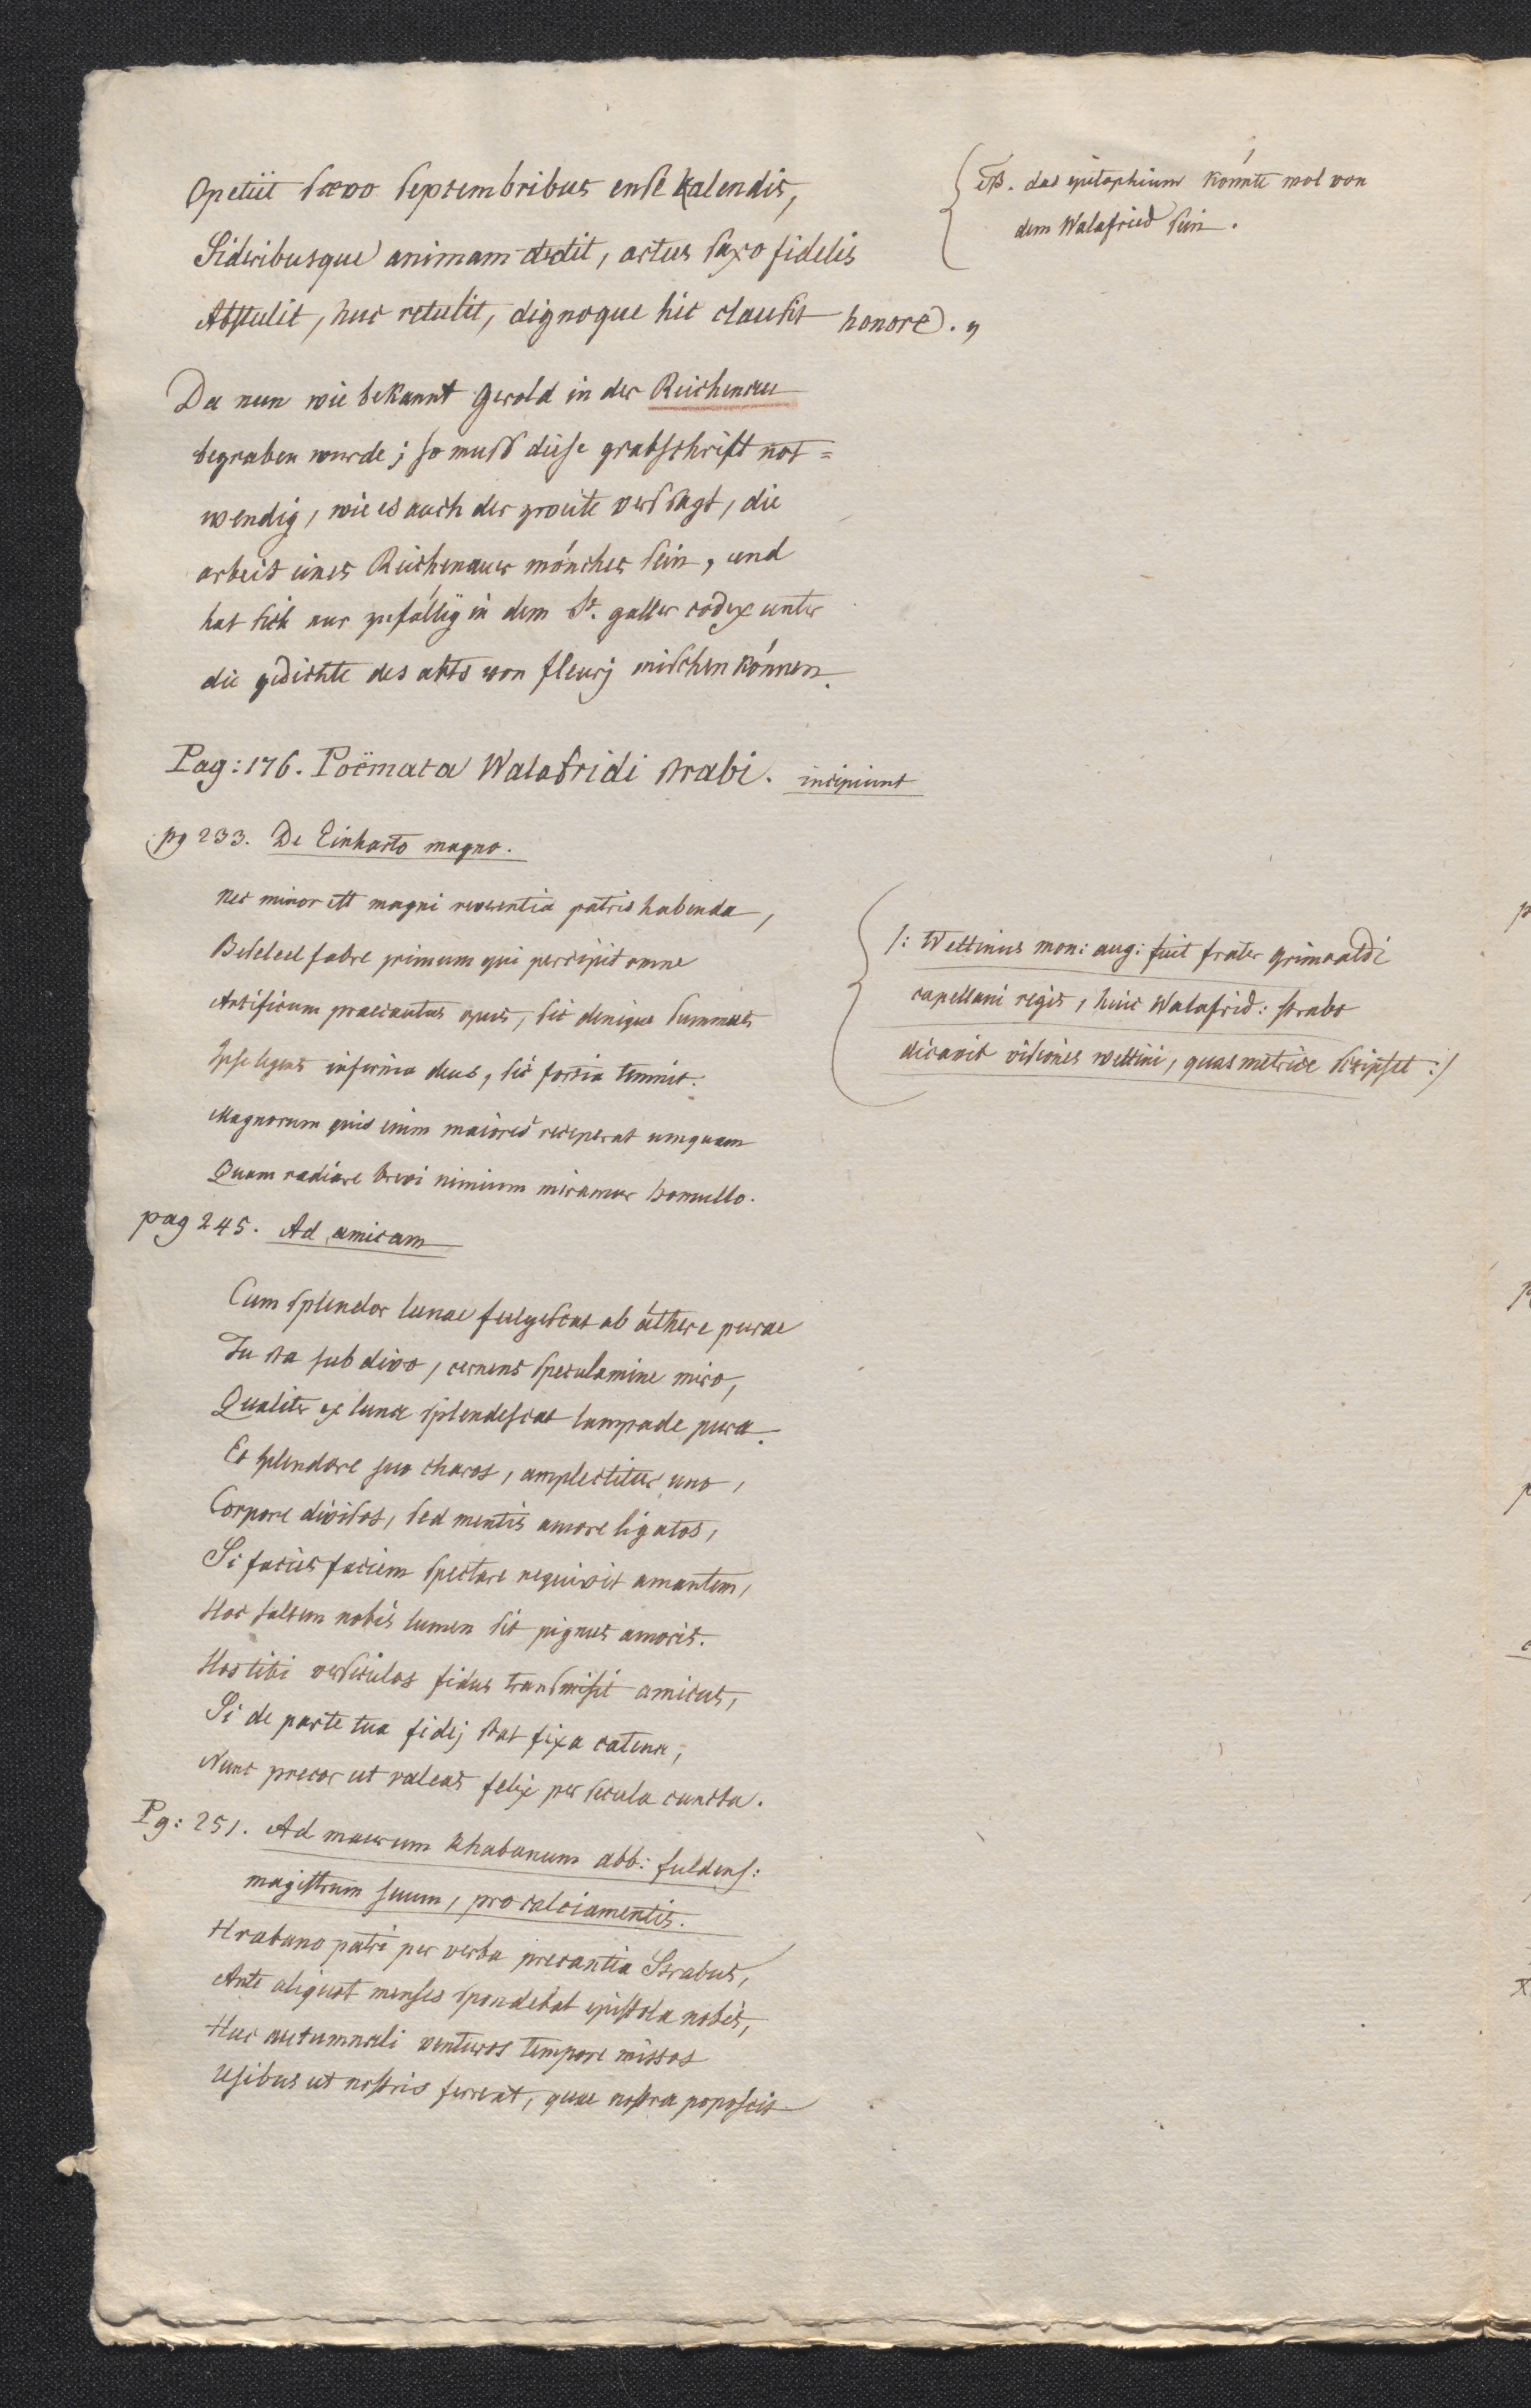 Opetiit sævo Septembribus ense kalendis,
Sideribusque animam dedit, artus saxo fidelis
Abstulit, huc retulit, dignoque hic clausit honore. „
NB. das epitaphium könnte wol von
dem Walafried sein.
Da nun wie bekannt Gerold in der Reichenau
begraben wurde; so muss diese grabschrift not=
wendig, wie es auch der zweite vers sagt, die
arbeit eines Reichenauer mönches sein, und
hat sich nur zufällig in dem St. galler codex unter
die gedichte des abts von fleurj mischen können.
Pag: 176. Poëmata Walafridi strabi. incipiunt
pg 233. De Einharto magno.
Nec minor est magni reverentia patris habenda,
Beseleel fabre primum qui percipit omne
Artificum praecautus opus, sic denique summus
Ipse legens infirma deus, sic fortia temnit.
Magnorum quis enim maiores receperat umquam
Quam radiare brevi nimium miramur homullo.
/: Wettinus mon: aug: fuit frater grimaldi
capellani regis, huic Walafrid: strabo
dicavit visiones wettini, quas metrice scripset :/
pag 245. Ad amicam
Cum splendor lunae fulgescat ab äthere purae
Tu sta sub divo, cernens speculamine miro,
Qualiter ex luna splendescat lampade pura.
Et splendore suo charos, amplectitur uno,
Corpore divisos, sed mentis amore ligatos,
Si facies faciem spectare nequivit amantem,
Hoc saltem nobis lumen sit pignus amoris.
Hos tibi versiculos fidus transmisit amicus,
Si de parte tua fidej stat fixa catena,
Nunc precor ut valeas felix per secula cuncta.
Pg: 251. Ad maurum Rhabanum abb: fuldens:
magistrum suum, pro calciamentis.
Hrabano patri per verba precantia Strabus,
Ante aliquot menses spondebat epistola nobis,
Huc autumnali venturos tempore missos
Usibus ut nostris ferrent, quae nostra poposcit